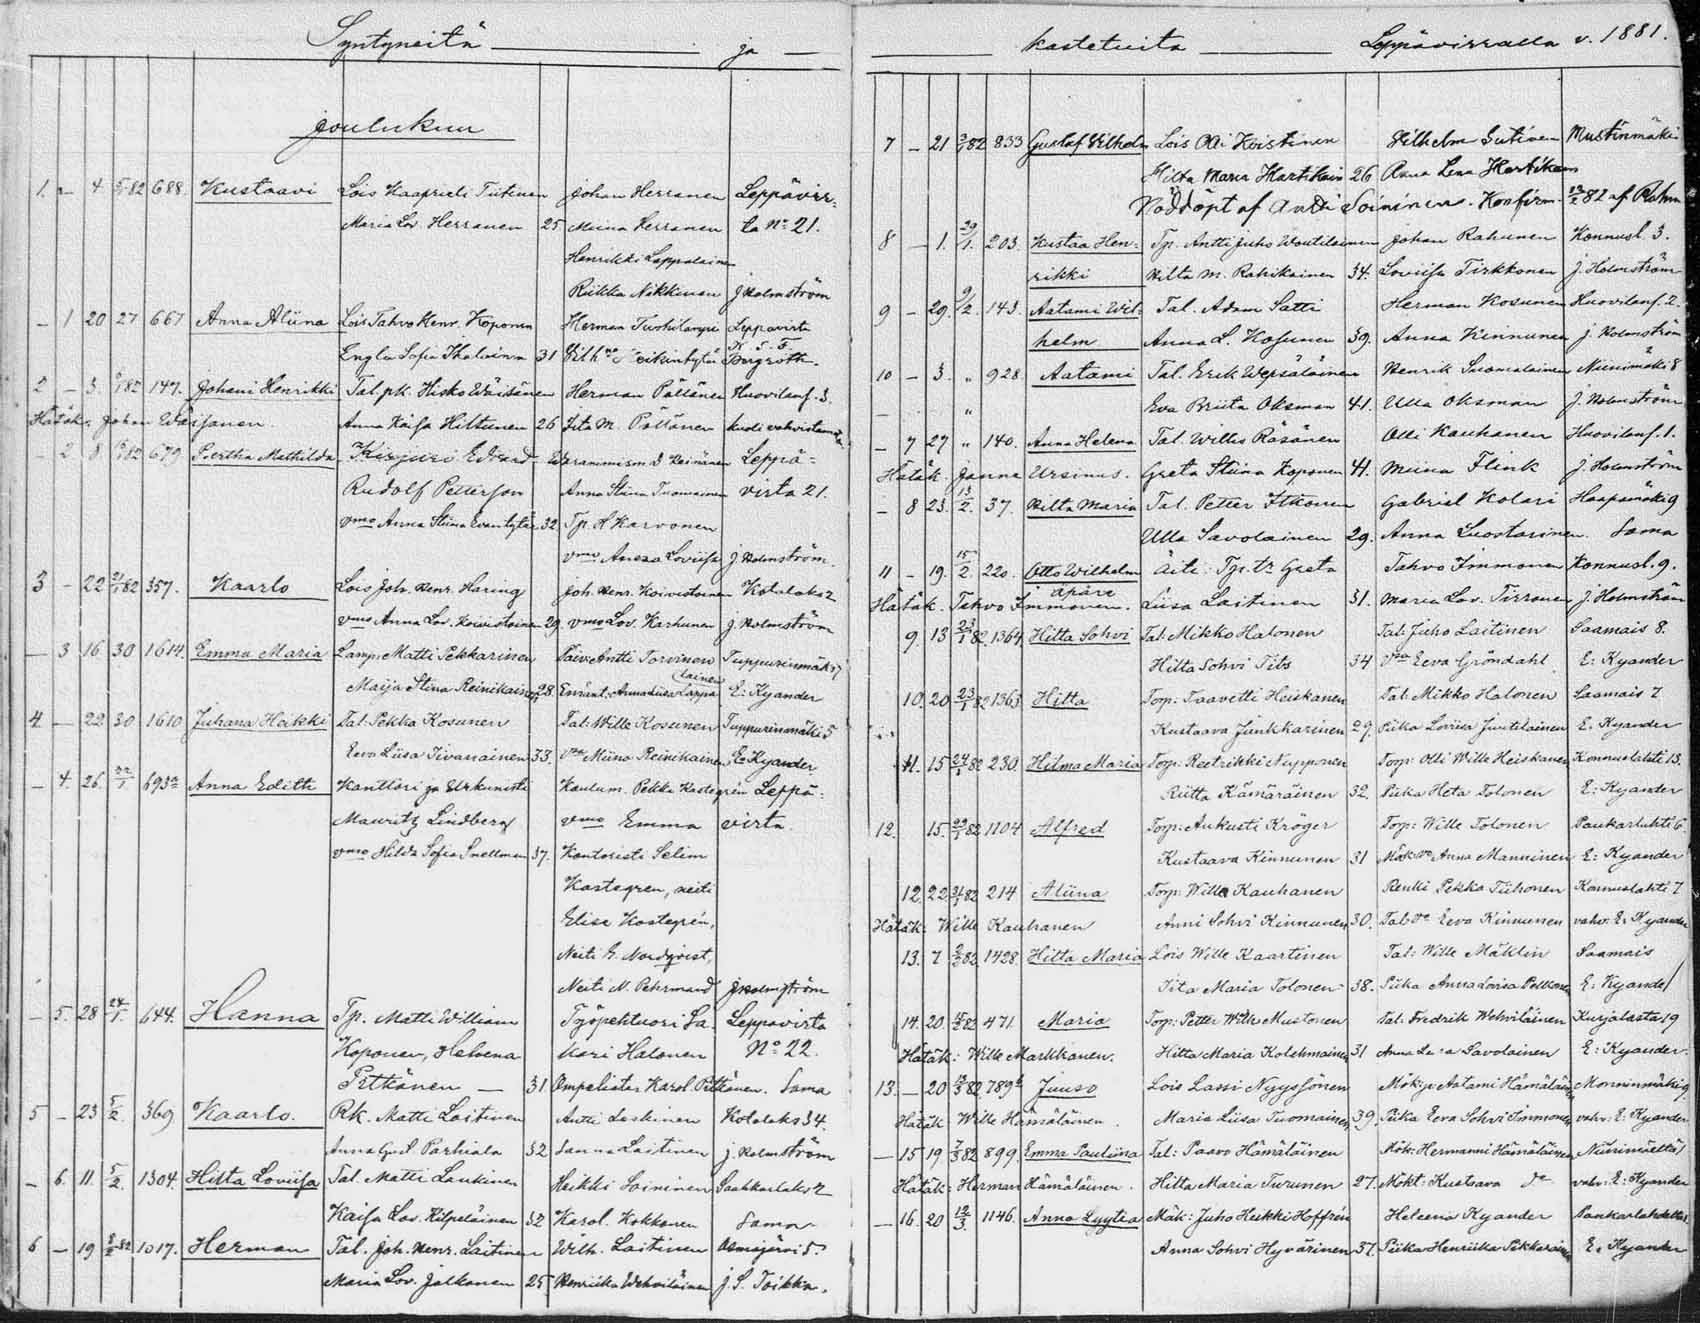 Syntyneitä ja
Joulukuu
1. – 4 5/1 82 688. Kustaavi Lois Kaaprieli Tiitinen Johan Herranen Leppävir-
Maria Lov. Herranen 25 Miina Herranen ta No 21.
Henrikki Leppalainen
Riikka Nikkinen J Holmström
– 1 20 27 667 Anna Aliina Lois Tahvo Henr. Koponen Herman Leppävirta
Engla Sofia Ikalainen 31 Bergroth.
2 – 3. 82 147. Johani Henrikki Tal. pk. Hisko Wäisänen Herman Pöllänen Huovilanf. 3.
Hätäk. Johan Wäisänen. Anna Kaisa Hiltunen 26 Iita M. Pöllänen
– 2 8 82 679 Bertha Mathilda Kirjuri Edvard Heinänen Leppä-
Rudolf Petterson Anna Stiina Tuomainen virta 21.
vmo Anna Stiina 32 Tp. A Karvonen
vmo Lovisa J Holmström.
3 – 22 21/1 82 357. Kaarlo Lois Joh. Henr. Haring Joh. Henr. Koivistoinen Kotalaks 2
vmo Anna Lov. Koivistoinen 29. vmo Lov. Karhunen J. Holmström
– 3 16 30 1614. Emma Maria Lamp. Matti Pekkarinen Päiv. Antti Torvinen Tuppurinmäki 7
Maija Stina Reinikainen 28. Annaliisa Lappalainen E: Kyander
4 – 22 30 1610 Juhana Heikki Tal. Pekka Kosunen Tal: Wille Kosunen Tuppurinmäki 5
Eeva Liisa Iivanainen 33. Miina Reinikainen E: Kyander
– 4. 26. 22/1 693a Anna Edith Kanttori ja Urkunisti Kaulum. Pekka Kastegrén Leppä-
Mauritz Lindberg vmo Emma virta.
vmo Hilda Sofia Snellman 37. Kontoristi Selim
Kastegren, neiti
Elise Kastegrén,
Neiti G. Nordqvist,
Neiti N. Pehrmand J Holmström
– 5. 28 24/1. 644. Hanna Tp. Matti William Leppävirta
Koponen, Helena Kari Halonen No 22.
Pitkänen – 31 Ompelister Karol. Pitkänen. Sama
5 – 23 5/2. 369 Kaarlo. Rk. Matti Laitinen Antti Leskinen Kotalaks 34.
Anna Gust. Parhiala 32 Sanna Laitinen J. Holmström
– 6. 11. 5/2. 1304. Hilta Loviisa Tal. Matti Laukinen Heikki Soininen Saahkarlaks 2
Kaisa Lov. Kilpeläinen 32 Karol. Kokkonen Sama
6 – 19 82 1017. Herman Tal. Joh. Henr. Laitinen Wilh. Laitinen Osmajärvi 5.
Maria Lov. Jalkanen 25 Henriikka Wehviläinen J. S. Toikka.
kastetuita Leppävirralla v. 1881.
7 – 21 82 833 Gustaf Vilhelm Lois Olli Koistinen Vilhelm Sutinen Mustinmäki
Hilta Maria Hartikain 26 Anna Lena Hartikain
Nöddöpt af Antti Soininen. Konfirm. 13/2 82 af Rahm
8 – 1. 29/1. 203. Kustaa Hen- Tp. Antti Juho Woutilainen Johan Rahunen Konnusl. 3.
rikki Hilta M. Rahikainen 34. Loviisa Tirkkonen J. Holmström
9 – 29. 9/2. 143. Aatami Wil- Tal. Adam Satti Herman Kosunen Huovilanf. 2.
helm Anna L. Kosunen 39. Anna Kinnunen J. Holmström
10 – 3. „ 928. Aatami Tal. Erik Wepsäläinen Henrik Suomalainen Niinimäki 8
– „ Eva Briita Oksman 41. Ulla Oksman J. Holmström
– 7 27 „ 140. Anna Helena Tal. Willes Räsänen Olli Kauhanen Huovilanf. 1.
Hätäk. Janne Ursinus. Greta Stiina Koponen 41. Miina Flink J. Holmström
– 8 23. 13/2. 37. Hilta Maria Tal. Petter Itkonen Gabriel Kolari Haapamäki 9
Ulla Savolainen 29. Anna Luostarinen. Sama
11 – 19. 15/2. 220. Otto Wilhelm Äiti: Tp. tr Greta Tahvo Immonen Konnusl. 9.
äpäre
Hätäk. Tahvo Immonen. Liisa Laitinen 31. Maria Lov. Tirronen J. Holmström
9. 13 23/1 82. 1364 Hilta Sohvi Tal: Mikko Halonen Tal: Juho Laitinen Saamais 8.
Hilta Sohvi Tits 34 Eeva Gröndahl E: Kyander
10. 20 23/1 82 1363 Hilta Torp: Taavetti Heiskanen Tal: Mikko Halonen Saamais 7
Kustaava Junkkarinen 29. Piika Loviisa Juutilainen E. Kyander
11. 15 24/1 82 230. Hilma Maria Torp: Reetrikki Nupponen Torp: Olli Wille Heiskanen Konnuslahti 13.
Riitta Kämäräinen 32. Piika Heta Tolonen E: Kyander
12. 15. 29/1 82 1104 Alfred Torp: Aukusti Kröger Torp: Wille Tolonen Paukarlahti 6.
Kustaava Kinnunen 31 Anna Manninen E: Kyander
12. 22 31/1 82 214 Aliina Torp: Wille Kauhanen Renki Pekka Tiihonen Konnuslahti 7
Hätäk: Wille Kauhanen Anni Sohvi Kinnunen 30. Eeva Kinnunen vahv: E: Kyander
13. 7 82 1428. Hilta Maria Lois Wille Kaartinen Tal: Wille Mäklin Saamais
Iita Maria Tolonen 38. Piika Anna Loviisa Pelkonen E: Kyander
14. 20 82 471 Maria Torp: Petter Wille Mustonen Tal: Fredrik Wehviläinen Kurjalasta 19
Hätäk: Wille Markkanen. Hilta Maria Kolehmainen 31 Anna Savolainen E: Kyander.
13. – 20 82 789b Juuso Lois Lassi Nyyssönen Mök: p. Aatami Hämäläinen Monninmäki 9
Hätäk Wille Hämäläinen. Maria Liisa Tuomainen 39. Piika Eeva Sohvi Immonen vahv: E: Kyander
– 15 19 7/3 82 899. Emma Pauliina Tal: Paavo Hämäläinen Mök: Hermanni Hämäläinen Niinimäeltä 1
Hätäk: Herman Hämäläinen. Hilta Maria Turunen 27. Mökt: Kustaava vahv: E: Kyander
– 16. 20 12/3 1146. Anna Lyytia Mäk: Juho Heikki Hoffrén Heleena Kyander
Anna Sohvi Hyvärinen 37. Piika Henriika Pekkarainen E: Kyander